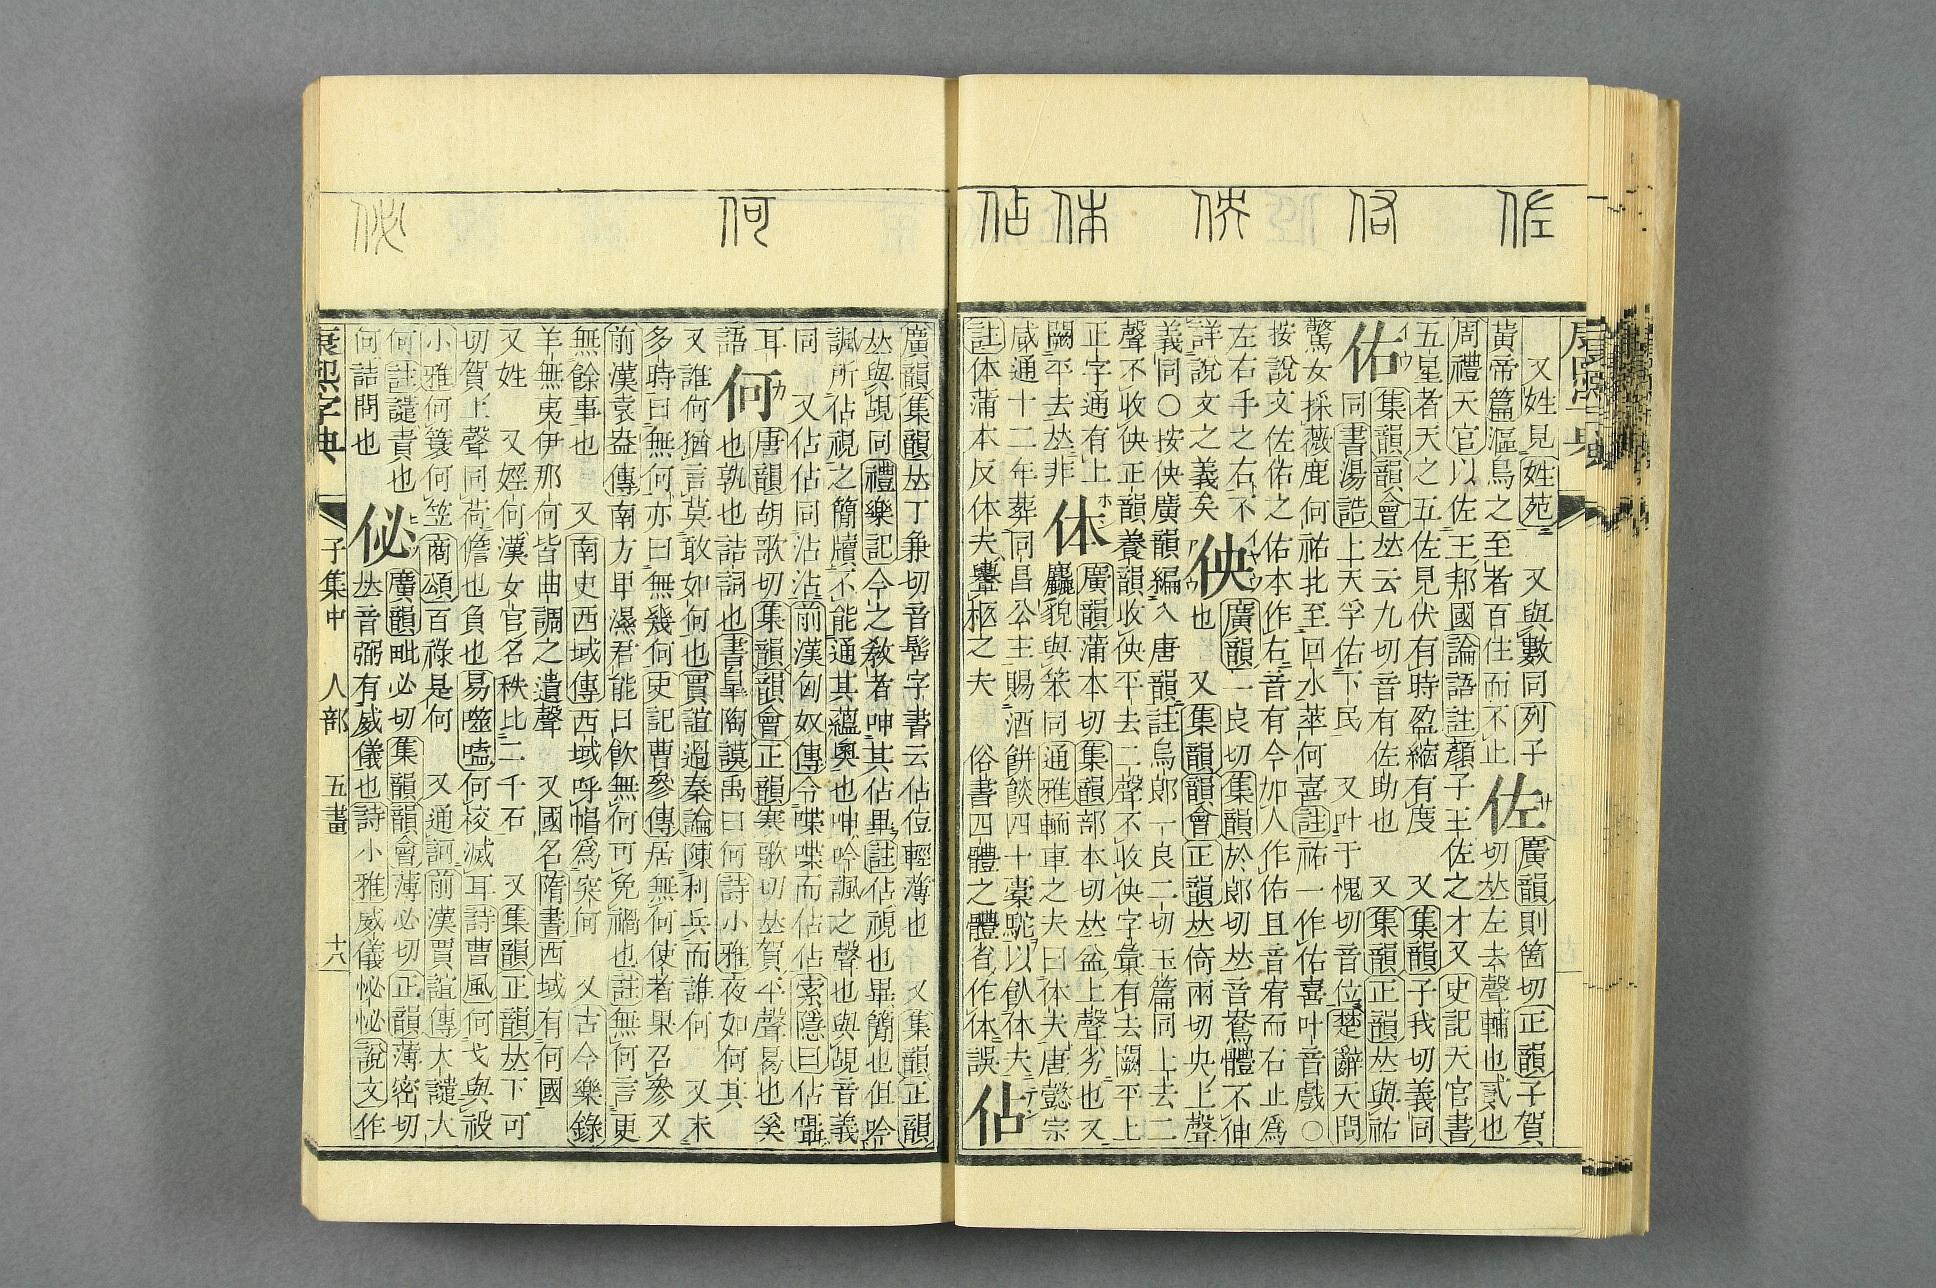 佐 佑 佒 体 佔 何 佖
康熙字典
又姓見姓苑 又與數同列子
黃帝篇漚鳥之至者百住而不止
佐サ
廣韻則箇切正韻子賀
切𠀤左去聲輔也貳也
周禮天官以佐王邦國論語註顏子王佐之才又史記天官書
五星者天之五佐見伏有時盈縮有度 又集韻子我切義同
佑イウ
集韻韻會𠀤云九切音有佐助也 又集韻正韻𠀤與祐
同書湯誥上天孚佑下民 又叶于愧切音位楚辭天問
驚女採薇鹿何祐北至回水萃何喜註祐一作佑喜叶音戲○
按說文佐佑之佑本作右音有今加人作佑且音宥而右止爲
左右手之右不
詳說文之義矣
佒イヤウ アウ
廣韻一良切集韻於郎切𠀤音鴦體不伸
也 又集韻韻會正韻𠀤倚兩切央上聲
義同○按佒廣韻編入唐韻註烏郎一良二切玉篇同上去二
聲不收佒正韻養韻收佒平去二聲不收佒字彙有去闕平上
正字通有上
闕平去𠀤非
体ホン
廣韻蒲本切集韻部本切𠀤盆上聲劣也又
麤貌與笨同通雅輀車之夫曰体夫唐懿宗
咸通十二年葬同昌公主賜酒餅餤四十橐駝以飮体夫
註体蒲本反体夫轝柩之夫 俗書四體之體省作体誤
佔テン
廣韻集韻𠀤丁兼切音髻字書云佔位輕薄也 又集韻正韻
𠀤與覘同禮樂記今之敎者呻其佔畢註佔視也畢簡也但吟
諷所佔視之簡牘不能通其蘊奧也呻吟諷之聲也與覘音義
同 又佔佔同沾沾前漢匈奴傳令喋喋而佔佔索隱曰佔囁
耳
語
何カ
唐韻胡歌切集韻韻會正韻寒歌切𠀤賀平聲曷也奚
也孰也詰詞也書臯陶謨禹曰何詩小雅夜如何其
又誰何猶言莫敢如何也賈誼過秦論陳利兵而誰何 又未
多時曰無何亦曰無幾何史記曹參傳居無何使者果召參又
前漢袁盎傳南方𤰞濕君能日飮無何可免禍也註無何言更
無餘事也 又南史西域傳西域呼帽爲突何 又古今樂錄
羊無夷伊那何皆曲調之遺聲 又國名隋書西域有何國
又姓 又娙何漢女官名秩比二千石 又集韻正韻𠀤下可
切賀上聲同荷儋也負也易噬嗑何校滅耳詩曹風何戈與祋
小雅何簑何笠商頌百祿是何 又通訶前漢賈誼傳大譴大
何註譴責也
何詰問也
佖ヒツ
廣韻毗必切集韻韻會薄必切正韻薄密切
𠀤音弼有威儀也詩小雅威儀怭怭說文作
康熙字典 子集中 人部 五畫 十八